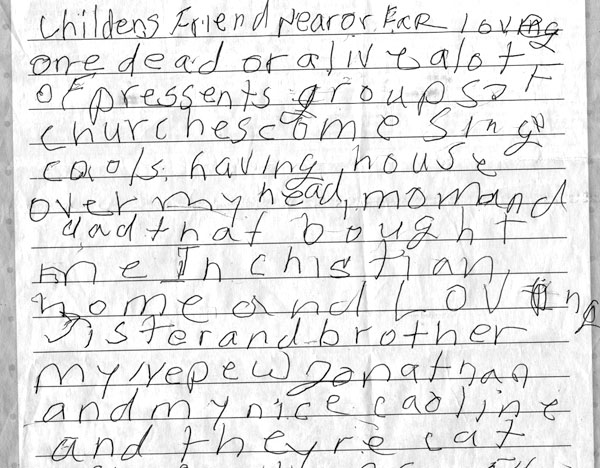 Childens Friend Near or Far loving
one dead or alive alot
of pressents groups at
churches come sing
caols, having house
over my head, mom and
dad that bought
me In chistian
home and Loving
sister and brother
my Nepew Jonathan
and my nice caoline
and they re cat